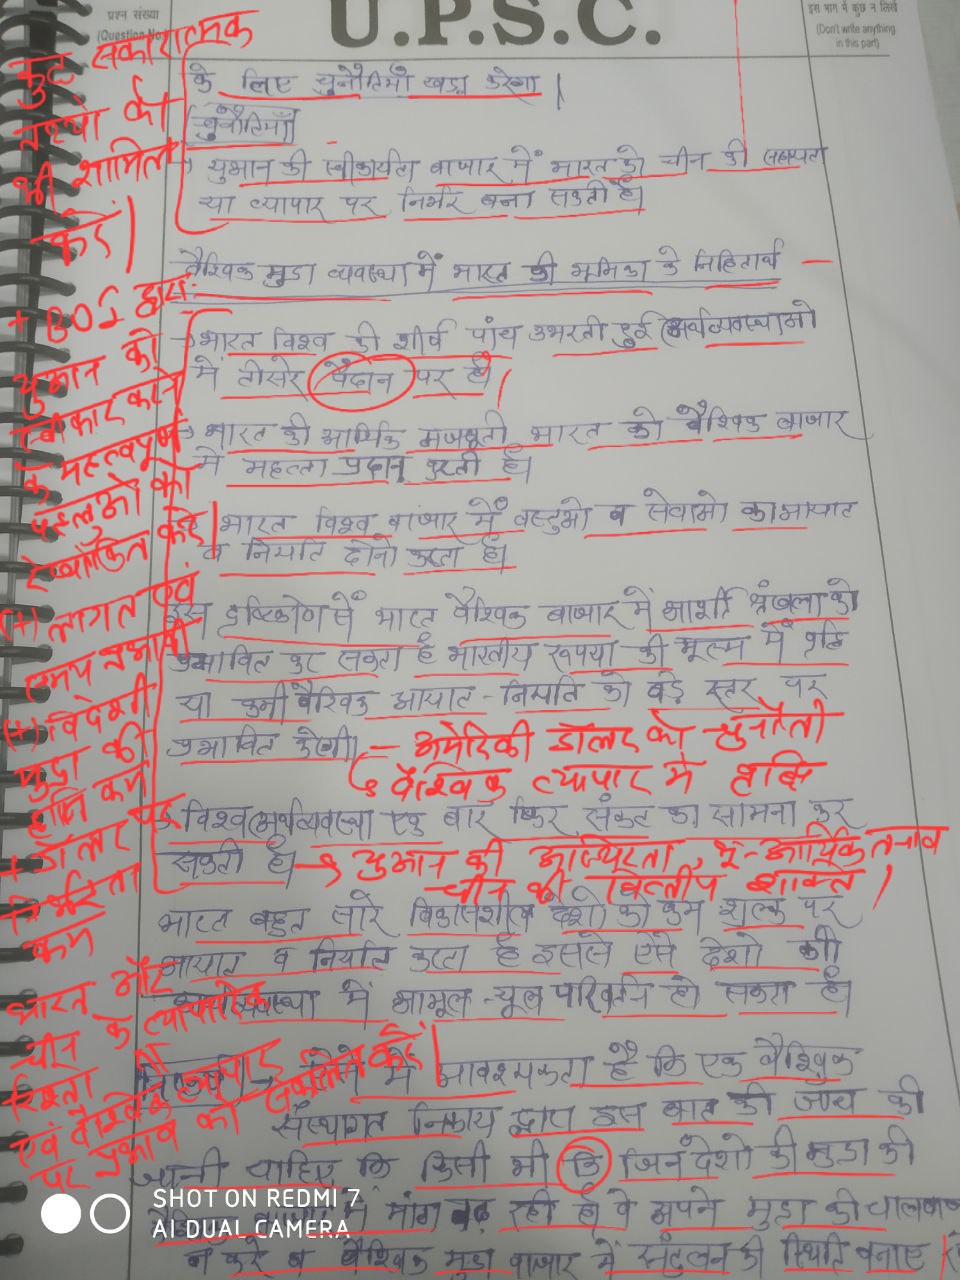 प्रश्न संख्या
(Question No.)
U.P.S.C.
इस भाग में कुछ न लिखें
(Don't write anything
in this part)
के लिए चुनौतियाँ खड़ा करेगा।
चुनौतियाँ
→ युआन की स्वीकार्यता बाजार में भारत को चीन की सहायता
या व्यापार पर निर्भर बना सकती है।
वैश्विक मुद्रा व्यवस्था में भारत की भूमिका के निहितार्थ —
→ भारत विश्व की शीर्ष पांच उभरती हुई अर्थव्यवस्थाओं
में तीसरे पैदान पर है।
→ भारत की आर्थिक मजबूती भारत को वैश्विक बाजार
में महत्ता प्रदान करती है।
भारत विश्व बाजार में वस्तुओं व सेवाओं का आयात
व निर्यात दोनों करता है।
इस दृष्टिकोण से भारत वैश्विक बाजार में आपूर्ति श्रृंखला को
प्रभावित कर सकता है भारतीय रूपया की मूल्य में वृद्धि
या कमी वैश्विक आयात-निर्यात को बड़े स्तर पर
प्रभावित करेगी।
— अमेरिकी डॉलर को चुनौती
वैश्विक व्यापार में वृद्धि
विश्व अर्थव्यवस्था एक बार फिर संकट का सामना कर
सकती है।
→ युआन की अस्थिरता, भू-आर्थिक तनाव
— चीन की वित्तीय शक्ति।
भारत बहुत सारे विकासशील देशों को कम शुल्क पर
आयात व निर्यात करता है इससे ऐसे देशों की
अर्थव्यवस्था में आमूल-चूल परिवर्तन हो सकता है।
निष्कर्ष → ऐसे में आवश्यकता है कि एक वैश्विक
संस्थागत निकाय द्वारा इस बात की जांच की
जानी चाहिए कि किसी भी कि जिन देशों की मुद्रा की
मांग बढ़ रही है वे अपने मुद्रा की चालबाजी
न करे व वैश्विक मुद्रा बाजार में संतुलन की स्थिति बनाए
कुछ सकारात्मक
तथ्यों को
भी शामिल
करें।
+ BOI द्वारा
युआन को
स्वीकार करने
के महत्वपूर्ण
पहलुओं को
रेखांकित करें।
(+) लागत एवं
समय प्रभावी
(+) विदेशी
मुद्रा की
हानि कम
+ डॉलर पर
निर्भरता
कम
भारत और
चीन के व्यापारिक
रिश्ता
एवं वैश्विक व्यापार
पर प्रभाव को उल्लेखित करें।
SHOT ON REDMI 7
AI DUAL CAMERA